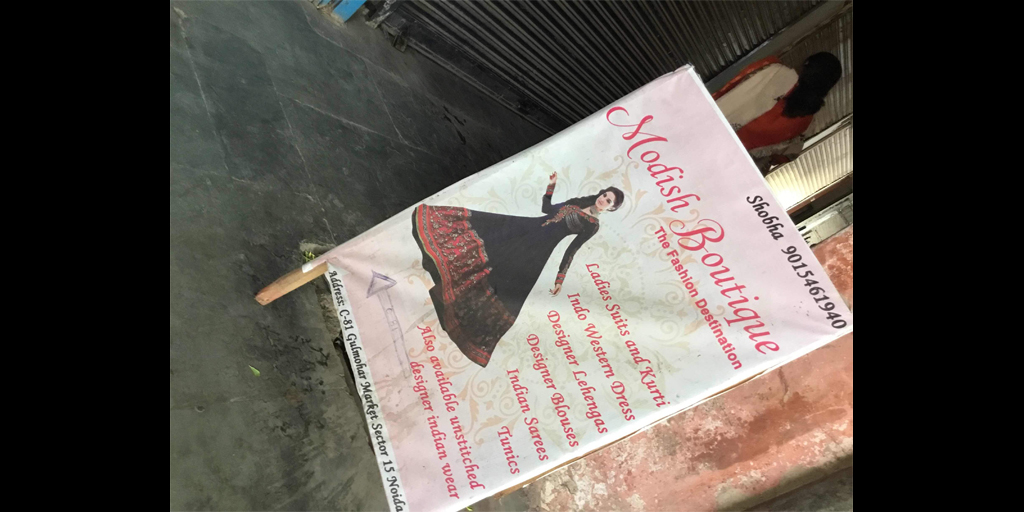 Shobha 9015461940
Modish Boutique
The Fashion Destination
Ladies Suits and Kurti
Indo Western Dress
Designer Lehengas
Designer Blouses
Indian Sarees
Tunics
Also available unstitched
designer indian wear
Address: C-81 Gulmohar Market Sector 15 Noida